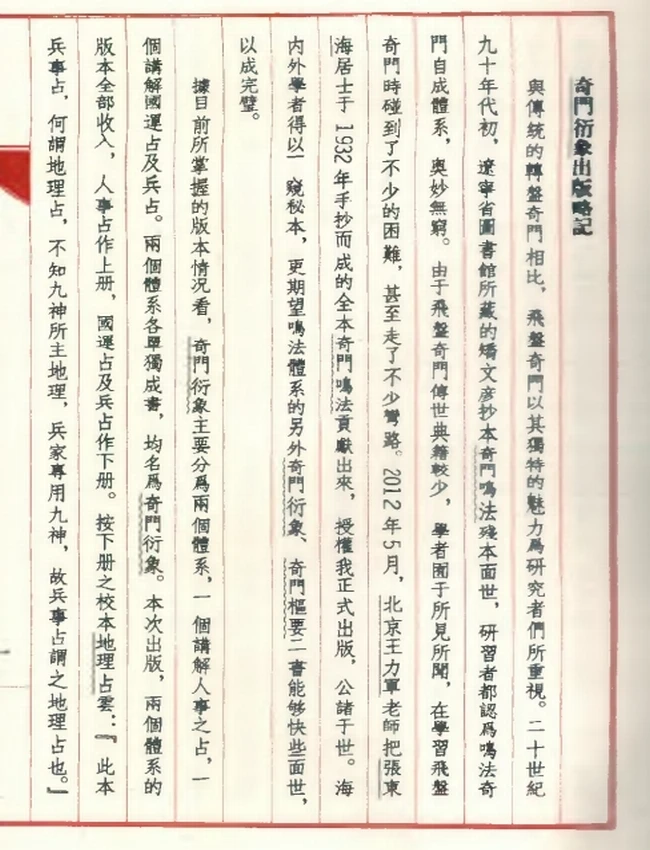 奇門衍象出版略記
與傳統的轉盤奇門相比，飛盤奇門以其獨特的魅力爲研究者們所重視。二十世紀
九十年代初，遼寧省圖書館所藏的矯文彥抄本奇門鳴法殘本面世，研習者都認爲鳴法奇
門自成體系，奧妙無窮。由于飛盤奇門傳世典籍較少，學者囿于所見所聞，在學習飛盤
奇門時碰到了不少的困難，甚至走了不少彎路。2012年5月，北京王力軍老師把張東
海居士于1932年手抄而成的全本奇門鳴法貢獻出來，授權我正式出版，公諸于世。海
内外學者得以一窺秘本，更期望鳴法體系的另外奇門衍象、奇門樞要二書能够快些面世，
以成完璧。
據目前所掌握的版本情况看，奇門衍象主要分爲兩個體系，一個講解人事之占，一
個講解國運占及兵占。兩個體系各單獨成書，均名爲奇門衍象。本次出版，兩個體系的
版本全部收入，人事占作上册，國運占及兵占作下册。按下册之校本地理占雲：『此本
兵事占，何謂地理占，不知九神所主地理，兵家專用九神，故兵事占謂之地理占也。』